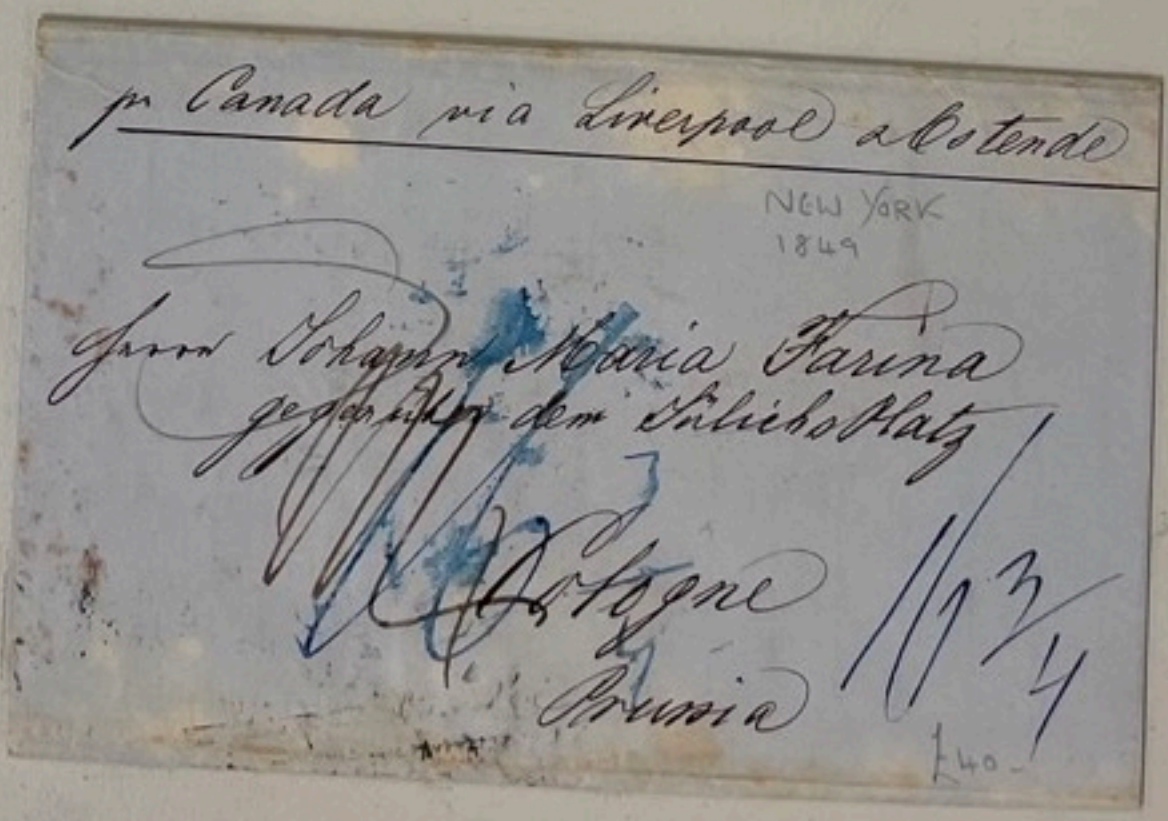 pr Canada via Liverpool & Ostende
NEW YORK
1849
Herrn Johann Maria Farina
gegenüber dem Jülichs Platz
Cologne
Prussia
3/4
£40-